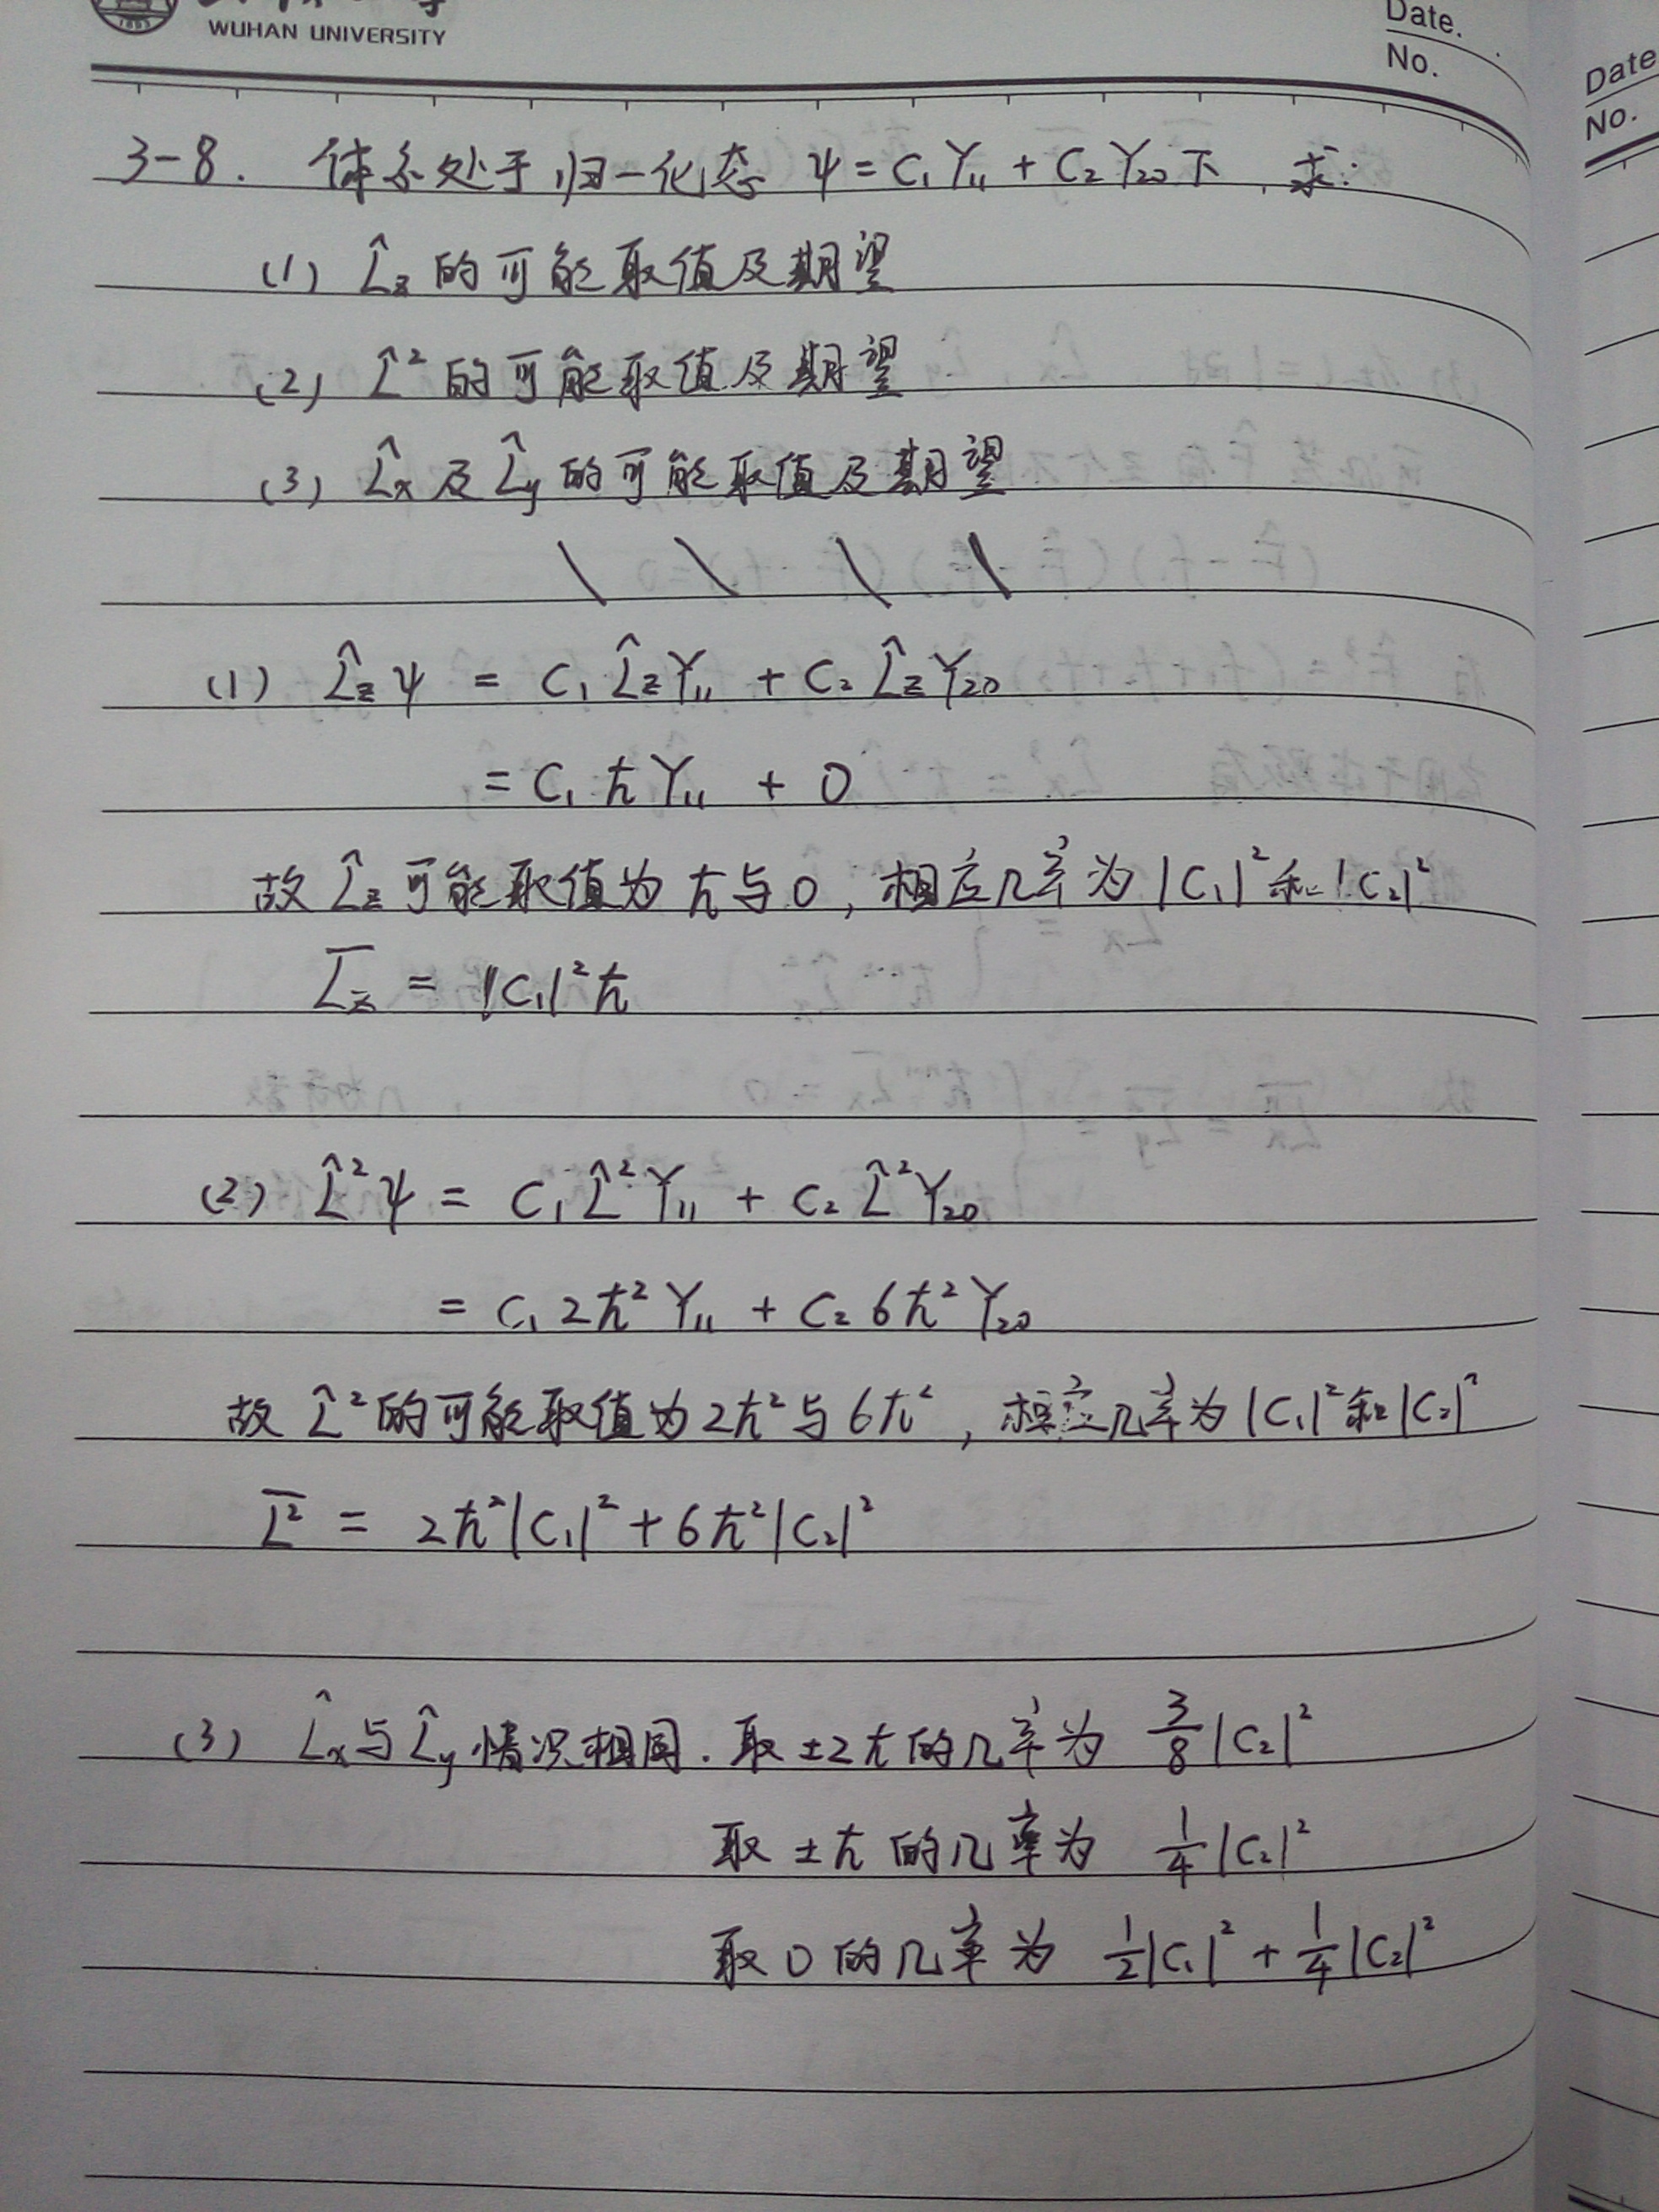 WUHAN UNIVERSITY
Date.
No.
Date
No.
3-8. 体系处于归一化态 ψ = C₁Y₁₁ + C₂Y₂₀下, 求:
(1) L̂z 的可能取值及期望
(2) L̂² 的可能取值及期望
(3) L̂x 及 L̂y 的可能取值及期望
(1) L̂zψ = C₁L̂zY₁₁ + C₂L̂zY₂₀
= C₁ħY₁₁ + 0
故 L̂z 可能取值为 ħ与0, 相应几率为 |C₁|² 和 |C₂|²
L̄z = |C₁|²ħ
(2) L̂²ψ = C₁L̂²Y₁₁ + C₂L̂²Y₂₀
= C₁2ħ²Y₁₁ + C₂6ħ²Y₂₀
故 L̂²的可能取值为2ħ²与6ħ², 相应几率为|C₁|²和|C₂|²
L̄² = 2ħ²|C₁|² + 6ħ²|C₂|²
(3) L̂x与L̂y情况相同. 取±2ħ的几率为 3/8|C₂|²
取±ħ的几率为 1/4|C₂|²
取0的几率为 1/2|C₁|² + 1/4|C₂|²